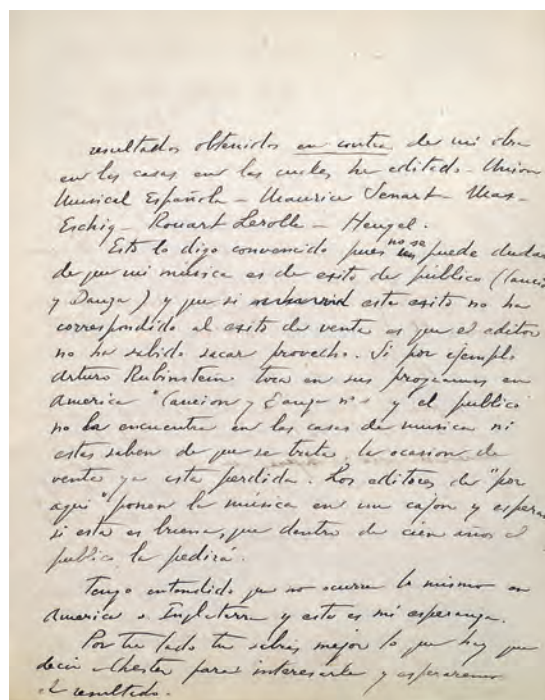 resultados obtenidos en contra de mi obra
en las casas en las cuales he editado - Union
Musical Española - Maurice Senart - Max-
Eschig - Rouart Lerolle - Heugel.
Esto lo digo convencido pues no se puede dudar
de que mi música es de exito de público (Canció
y Danza) y que si este exito no ha
correspondido al exito de venta es que el editor
no ha sabido sacar provecho. Si por ejemplo
Arturo Rubinstein toca en sus programas en
America "Cancion y Danza nº 1 y el publico
no la encuentra en las casas de musica ni
estas saben de que se trata, la ocasion de
venta ya esta perdida. Los editores de "por
aqui" ponen la música en un cajon y esperan
si esta es buena, que dentro de cien años el
publico la pedirá.
Tengo entendido que no ocurre lo mismo en
America o Inglaterra y esta es mi esperanza.
Por tu lado tu sabras mejor lo que hay que
decir a Chester para interesarle y esperaremos
el resultado.